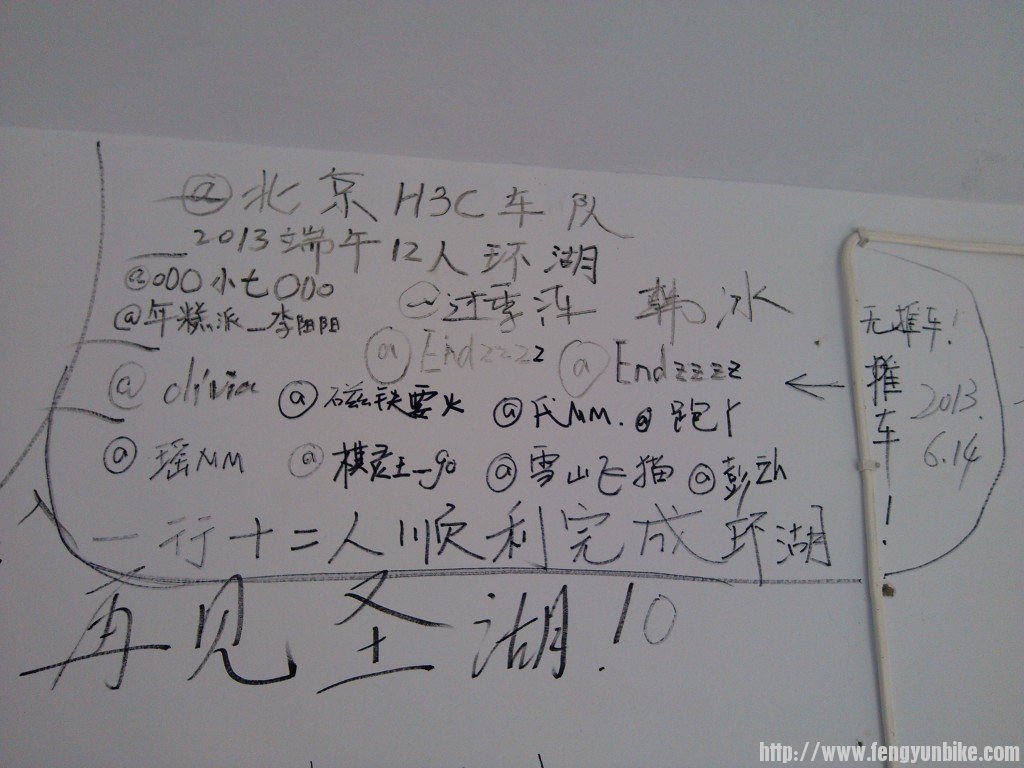 @北京H3C车队
2013端午12人环湖
@oDO小七ODo
@年糕派_李阳阳
韩冰
@Endzzzz @Endzzzz
@olivia @磁铁要火 @氏MM. @跑
@瑶MM @棋灵王_go @雪山飞猫 @彭zh
一行十二人顺利完成环湖
再见圣湖!10
无推车!
推车!
2013.
6.14
http://www.fengyunbike.com